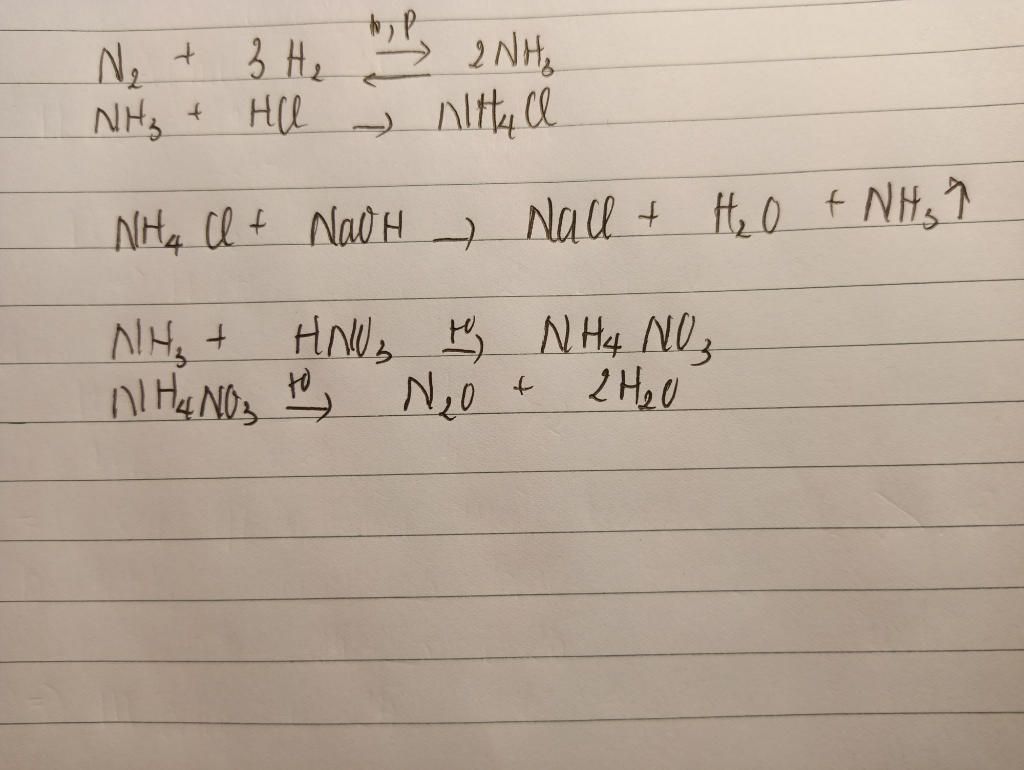 N₂ + 3 H₂ ⇄ 2NH₃
NH₃ + HCl → NH₄Cl
NH₄Cl + NaOH → NaCl + H₂O + NH₃↑
NH₃ + HNO₃ → NH₄NO₃
NH₄NO₃ → N₂O + 2H₂O